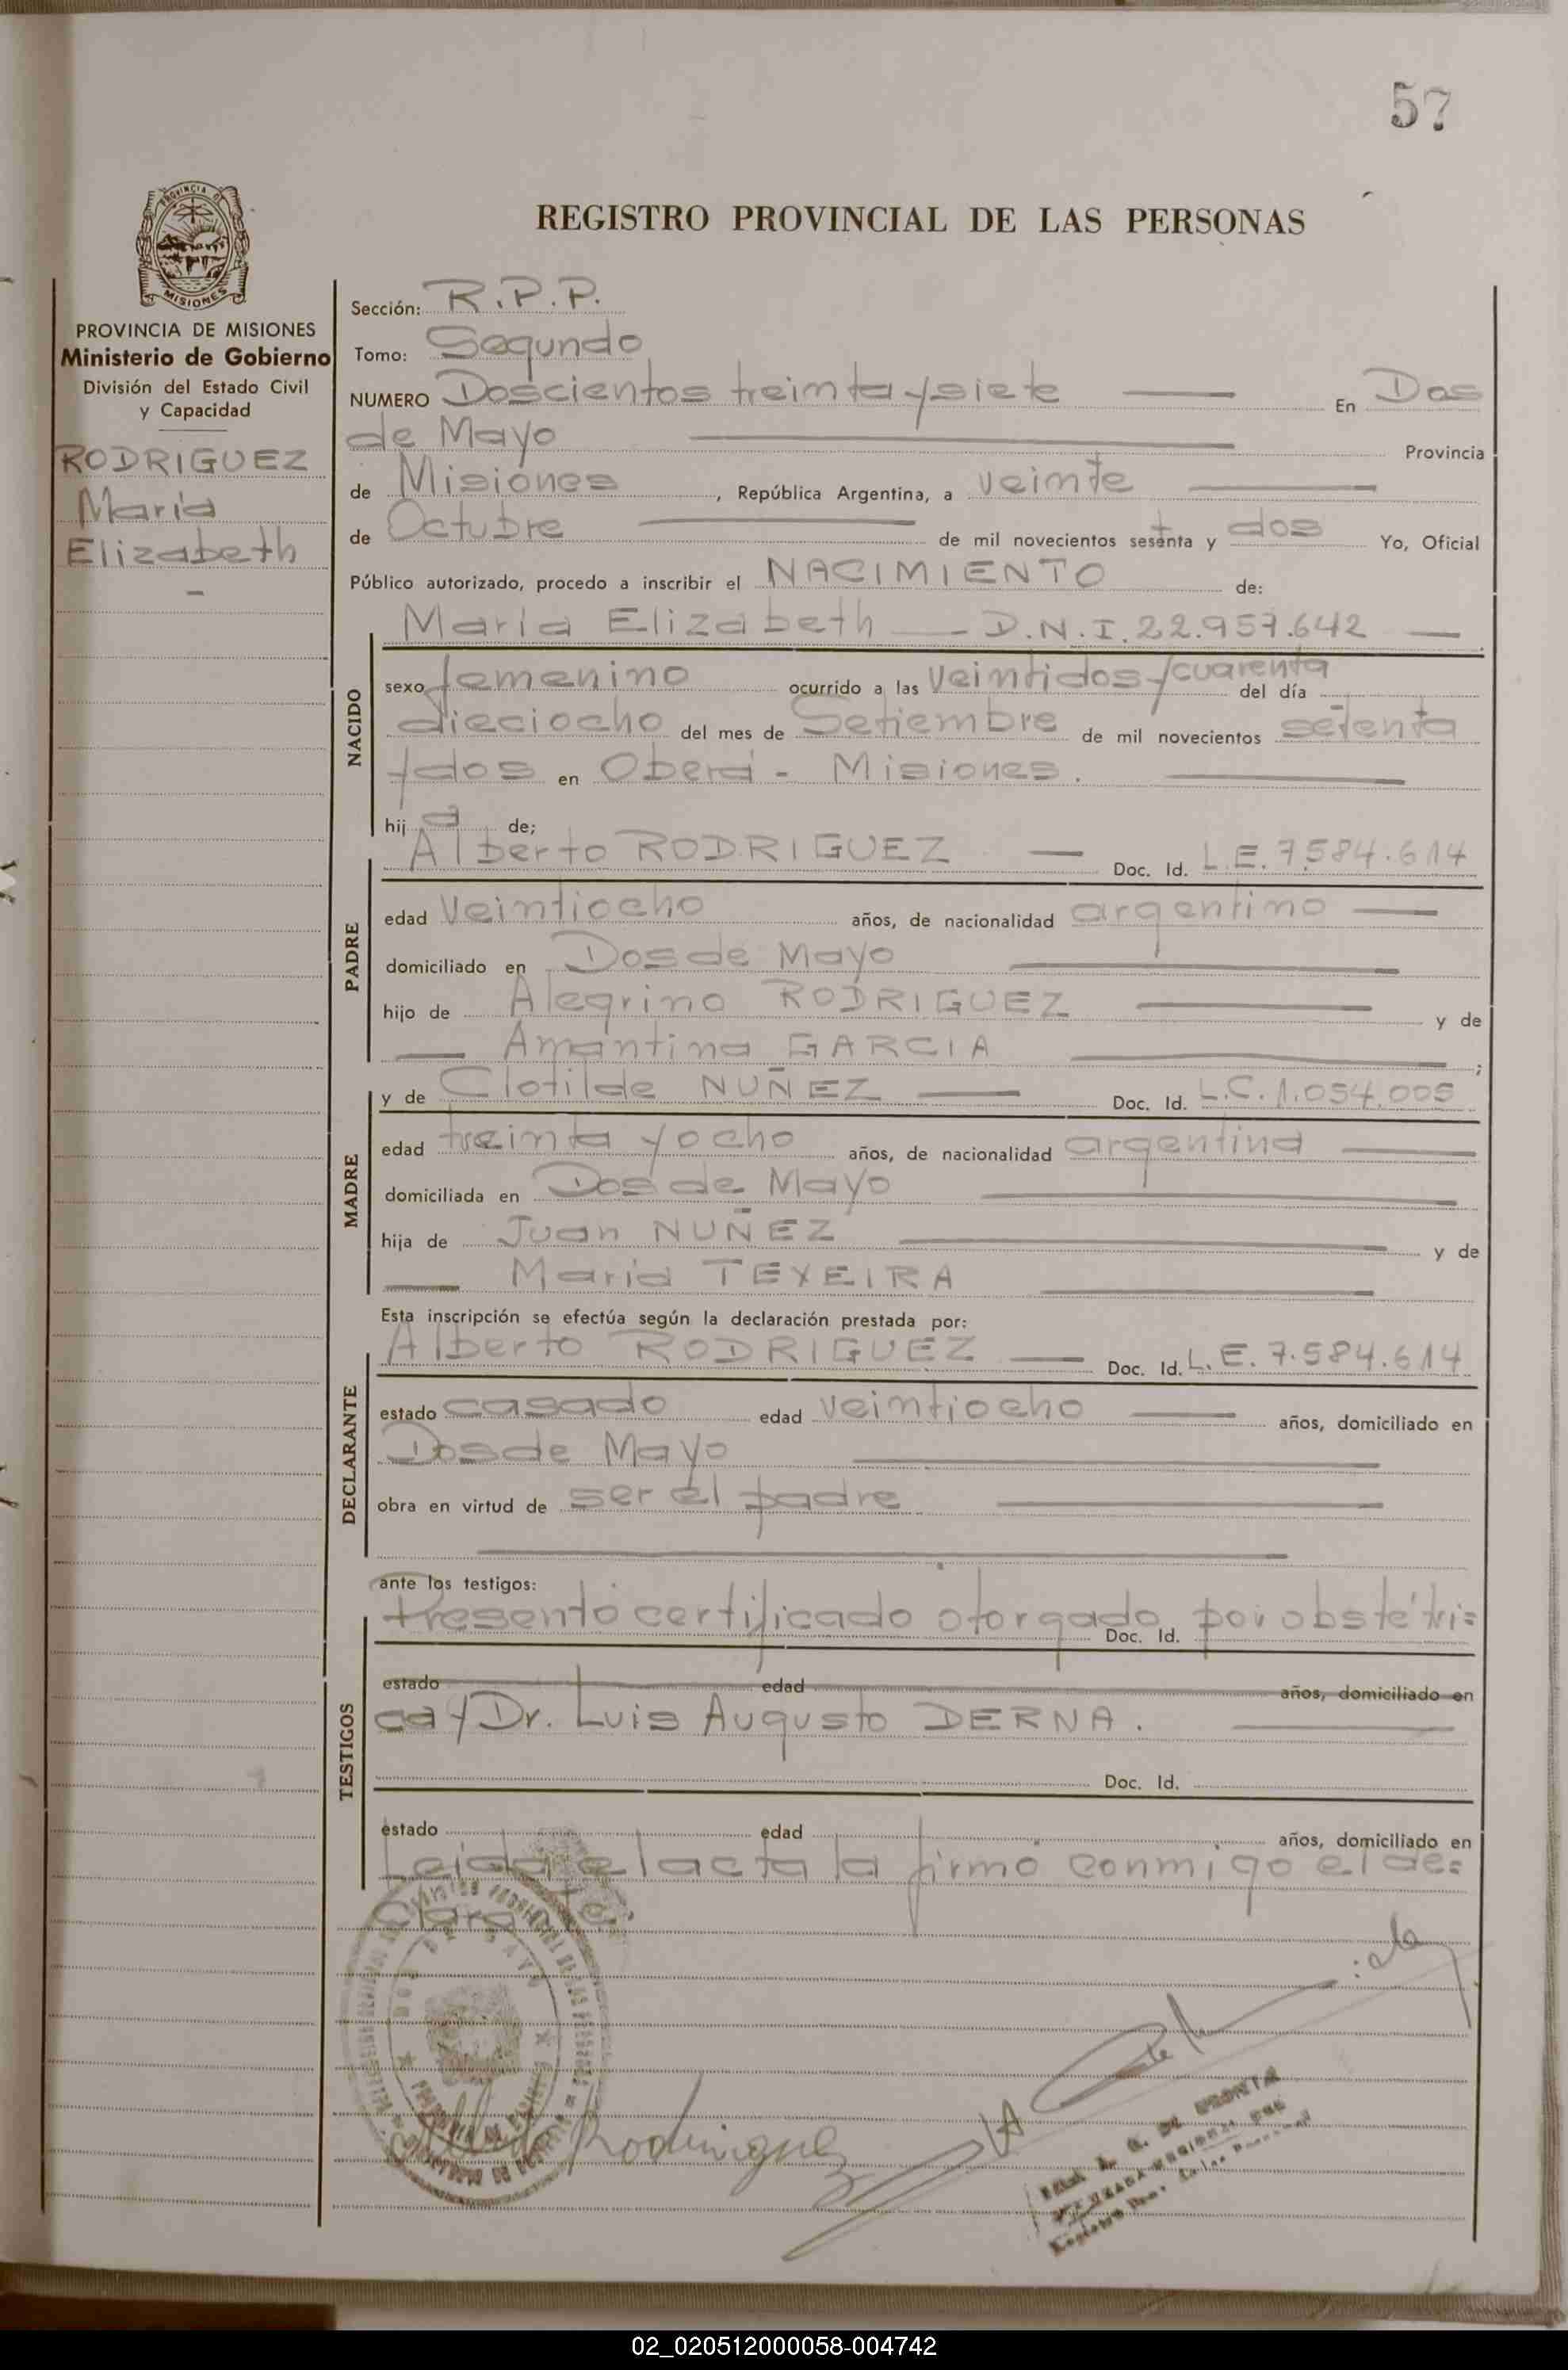 57
REGISTRO PROVINCIAL DE LAS PERSONAS
PROVINCIA DE MISIONES
Ministerio de Gobierno
División del Estado Civil
y Capacidad
RODRIGUEZ
Maria
Elizabeth
Sección: R.P.P.
Tomo: Segundo
NUMERO Doscientos treinta y siete En Dos
de Mayo Provincia
de Misiones, República Argentina, a veinte
de Octubre de mil novecientos setenta y dos Yo, Oficial
Público autorizado, procedo a inscribir el NACIMIENTO de:
NACIDO
Maria Elizabeth — D.N.I. 22.957.642 —
sexo femenino ocurrido a las veintidos y cuarenta del día
dieciocho del mes de Setiembre de mil novecientos setenta
y dos en Oberá - Misiones.
hija de;
PADRE
Alberto RODRIGUEZ — Doc. Id. L.E. 7.584.614
edad veintiocho años, de nacionalidad argentino
domiciliado en Dos de Mayo
hijo de Alegrino RODRIGUEZ y de
Amantina GARCIA ;
MADRE
y de Clotilde NUÑEZ Doc. Id. L.C. 1.054.005
edad treinta y ocho años, de nacionalidad argentina
domiciliada en Dos de Mayo
hija de Juan NUÑEZ y de
Maria TEXEIRA
Esta inscripción se efectúa según la declaración prestada por:
DECLARANTE
Alberto RODRIGUEZ — Doc. Id. L.E. 7.584.614
estado casado edad veintiocho años, domiciliado en
Dos de Mayo
obra en virtud de ser el padre
ante los testigos:
TESTIGOS
Presentó certificado otorgado por obstétri=
Doc. Id.
estado edad años, domiciliado en
ca y Dr. Luis Augusto DERNA.
Doc. Id.
estado edad años, domiciliado en
Leida el acta la firmo conmigo el de=
Rodriguez
02_020512000058-004742